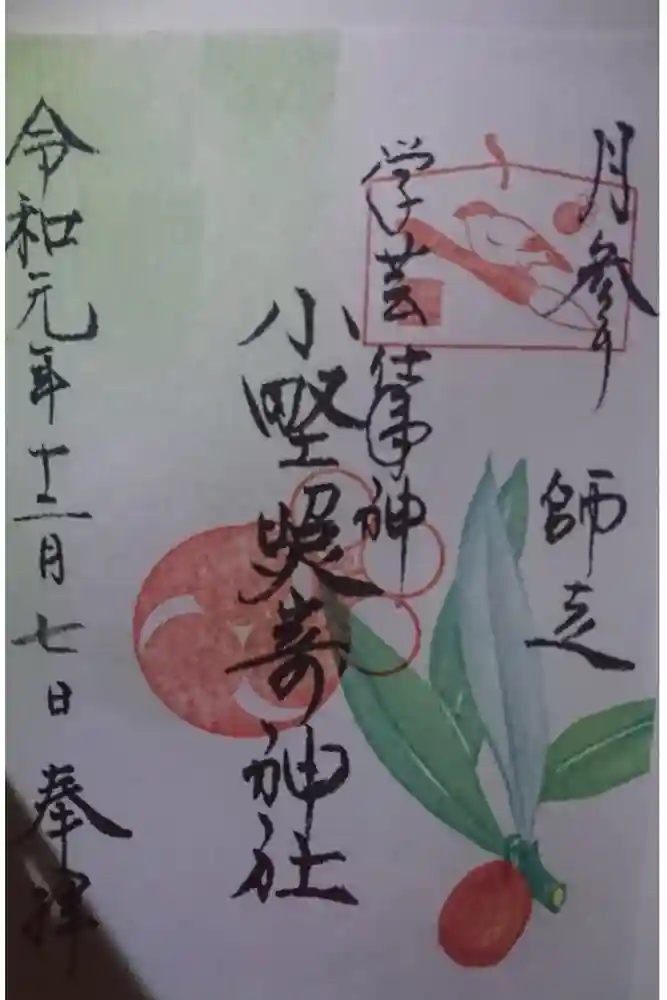 月参り
師走
学芸 仕事神
小野照崎神社
令和元年十二月七日 奉拝